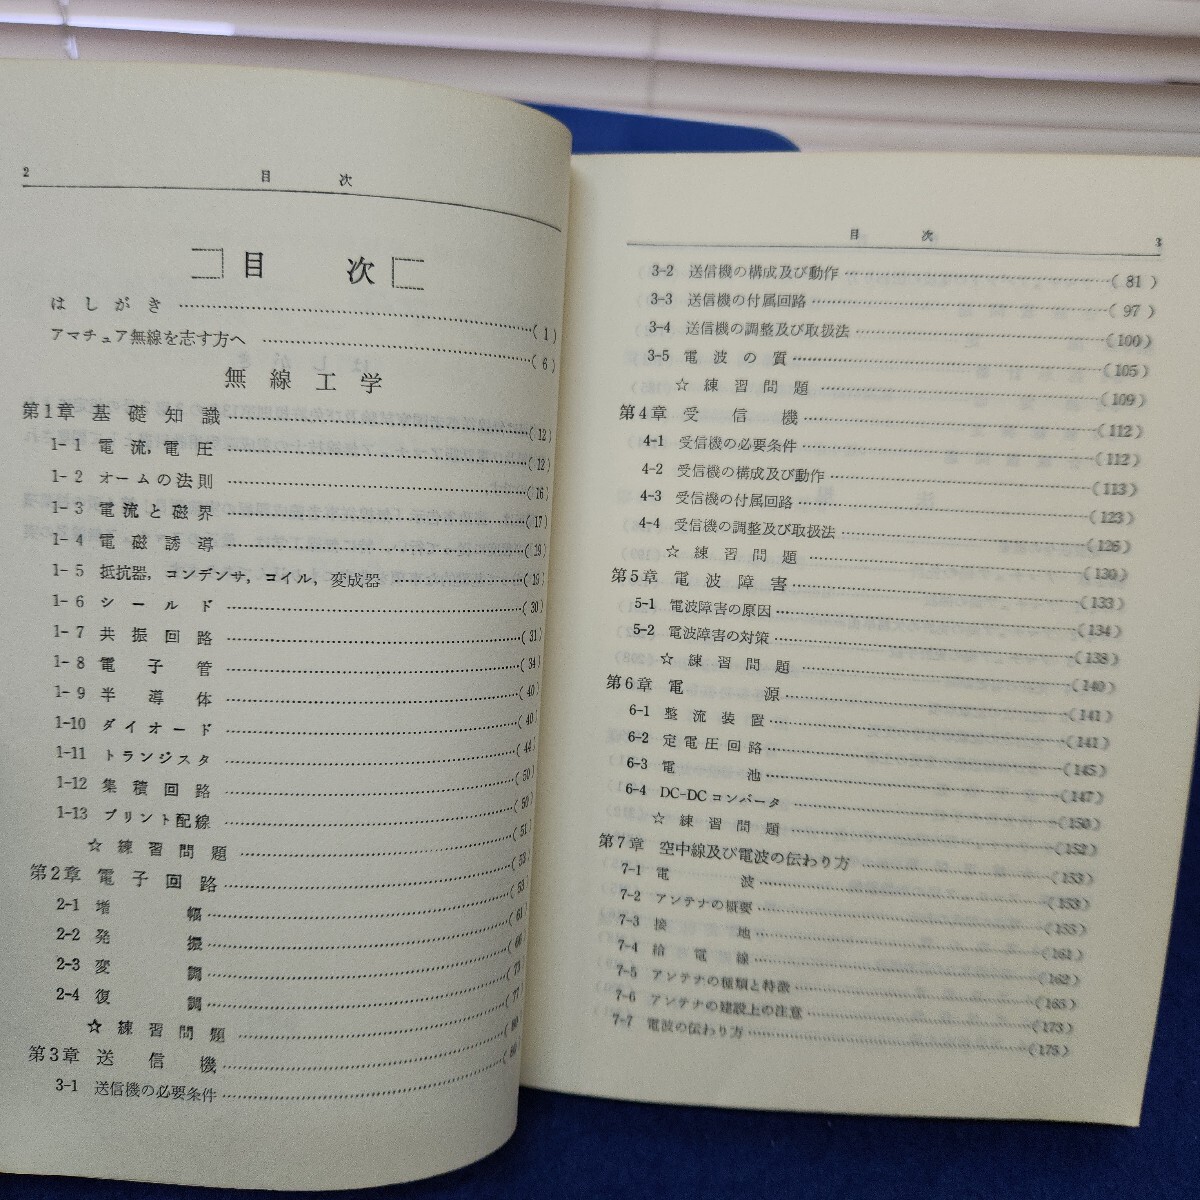 2 目次
目次
はしがき (1)
アマチュア無線を志す方へ (6)
無線工学
第1章 基礎知識 (12)
1-1 電流,電圧 (12)
1-2 オームの法則 (16)
1-3 電流と磁界 (17)
1-4 電磁誘導 (19)
1-5 抵抗器,コンデンサ,コイル,変成器
1-6 シールド (30)
1-7 共振回路 (31)
1-8 電子管 (34)
1-9 半導体 (40)
1-10 ダイオード (40)
1-11 トランジスタ (44)
1-12 集積回路 (50)
1-13 プリント配線 (50)
☆練習問題 (51)
第2章 電子回路 (53)
2-1 増幅 (53)
2-2 発振 (61)
2-3 変調
2-4 復調
☆練習問題 (77)
第3章 送信機 (80)
3-1 送信機の必要条件 (80)
目次 3
3-2 送信機の構成及び動作 (81)
3-3 送信機の付属回路 (97)
3-4 送信機の調整及び取扱法 (100)
3-5 電波の質 (105)
☆練習問題 (109)
第4章 受信機 (112)
4-1 受信機の必要条件 (112)
4-2 受信機の構成及び動作 (113)
4-3 受信機の付属回路 (123)
4-4 受信機の調整及び取扱法 (126)
☆練習問題 (130)
第5章 電波障害 (133)
5-1 電波障害の原因 (134)
5-2 電波障害の対策 (138)
☆練習問題 (140)
第6章 電源 (141)
6-1 整流装置 (141)
6-2 定電圧回路 (145)
6-3 電池 (147)
6-4 DC-DCコンバータ (150)
☆練習問題 (152)
第7章 空中線及び電波の伝わり方 (153)
7-1 電波 (153)
7-2 アンテナの概要 (155)
7-3 接地 (161)
7-4 給電線 (162)
7-5 アンテナの種類と特徴 (165)
7-6 アンテナの建設上の注意 (173)
7-7 電波の伝わり方 (175)